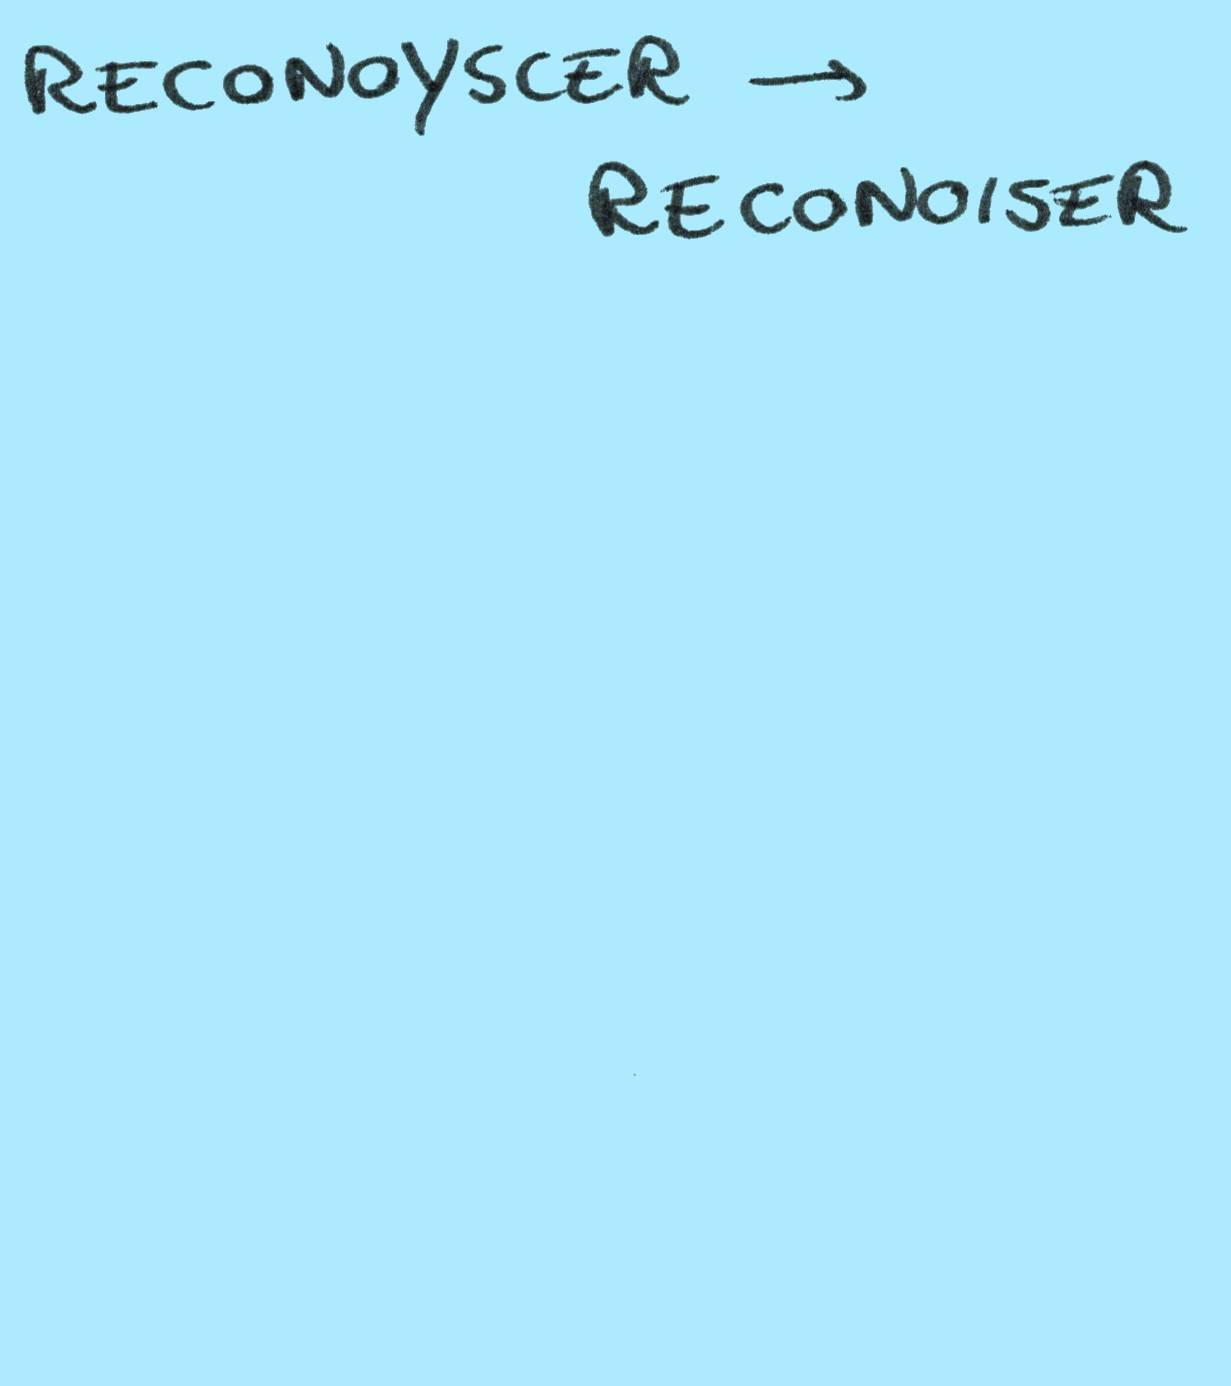 RECONOYSCER →
RECONOISER